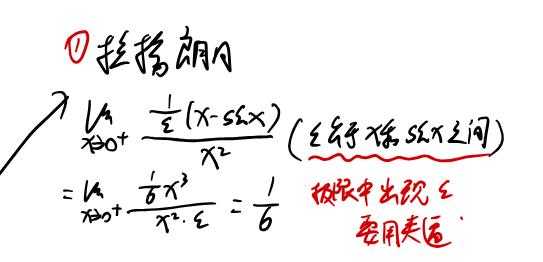 ① 拉格朗日
lim x→0⁺ \frac{\frac{1}{ξ}(x-sinx)}{x²} (ξ介于x和sinx之间)
= lim x→0⁺ \frac{\frac{1}{6}x³}{x²·ξ} = \frac{1}{6}
极限中出现ξ
要用夹逼